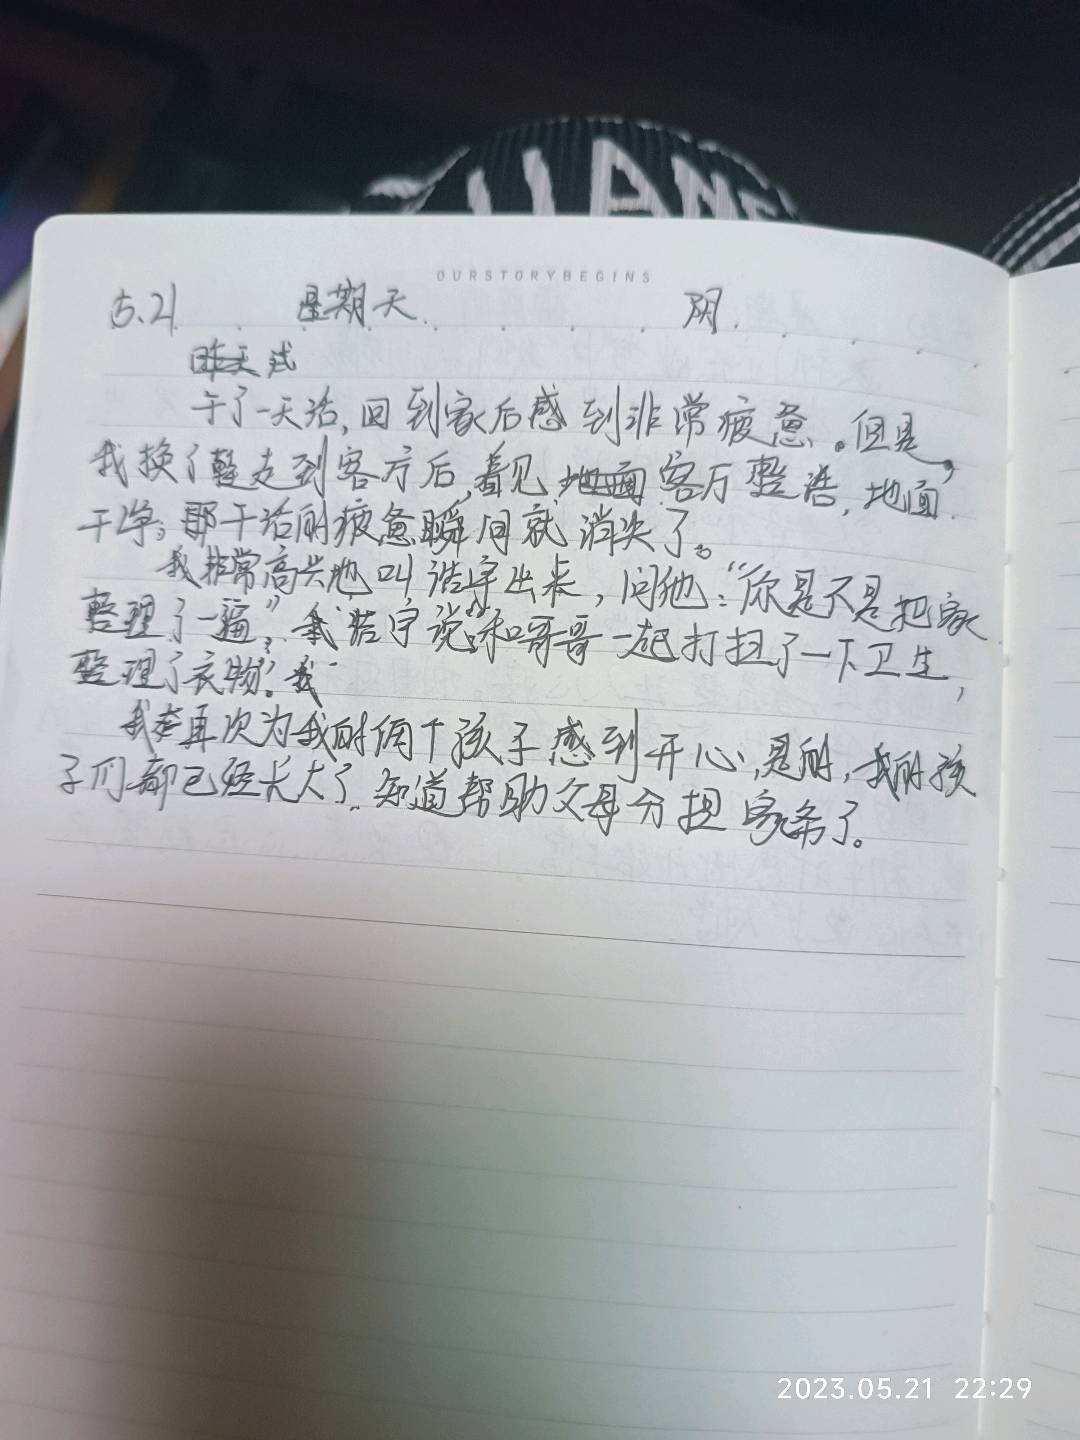 LIANG
OURSTORYBEGINS
5.21 星期天. 阴.
昨天我
干了一天活,回到家后感到非常疲惫。但是,
我换了鞋走到客厅后,看见地面客厅整洁,地面
干净;那干活的疲惫瞬间就消失了。
我非常高兴地叫浩宇出来,问他:“你是不是把家
整理了一遍?”我浩宇说:“和哥哥一起打扫了一下卫生,
整理了衣物。”我
我在再次为我的俩个孩子感到开心,是的,我的孩
子们都已经长大了.知道帮助父母分担家务了。
2023.05.21 22:29